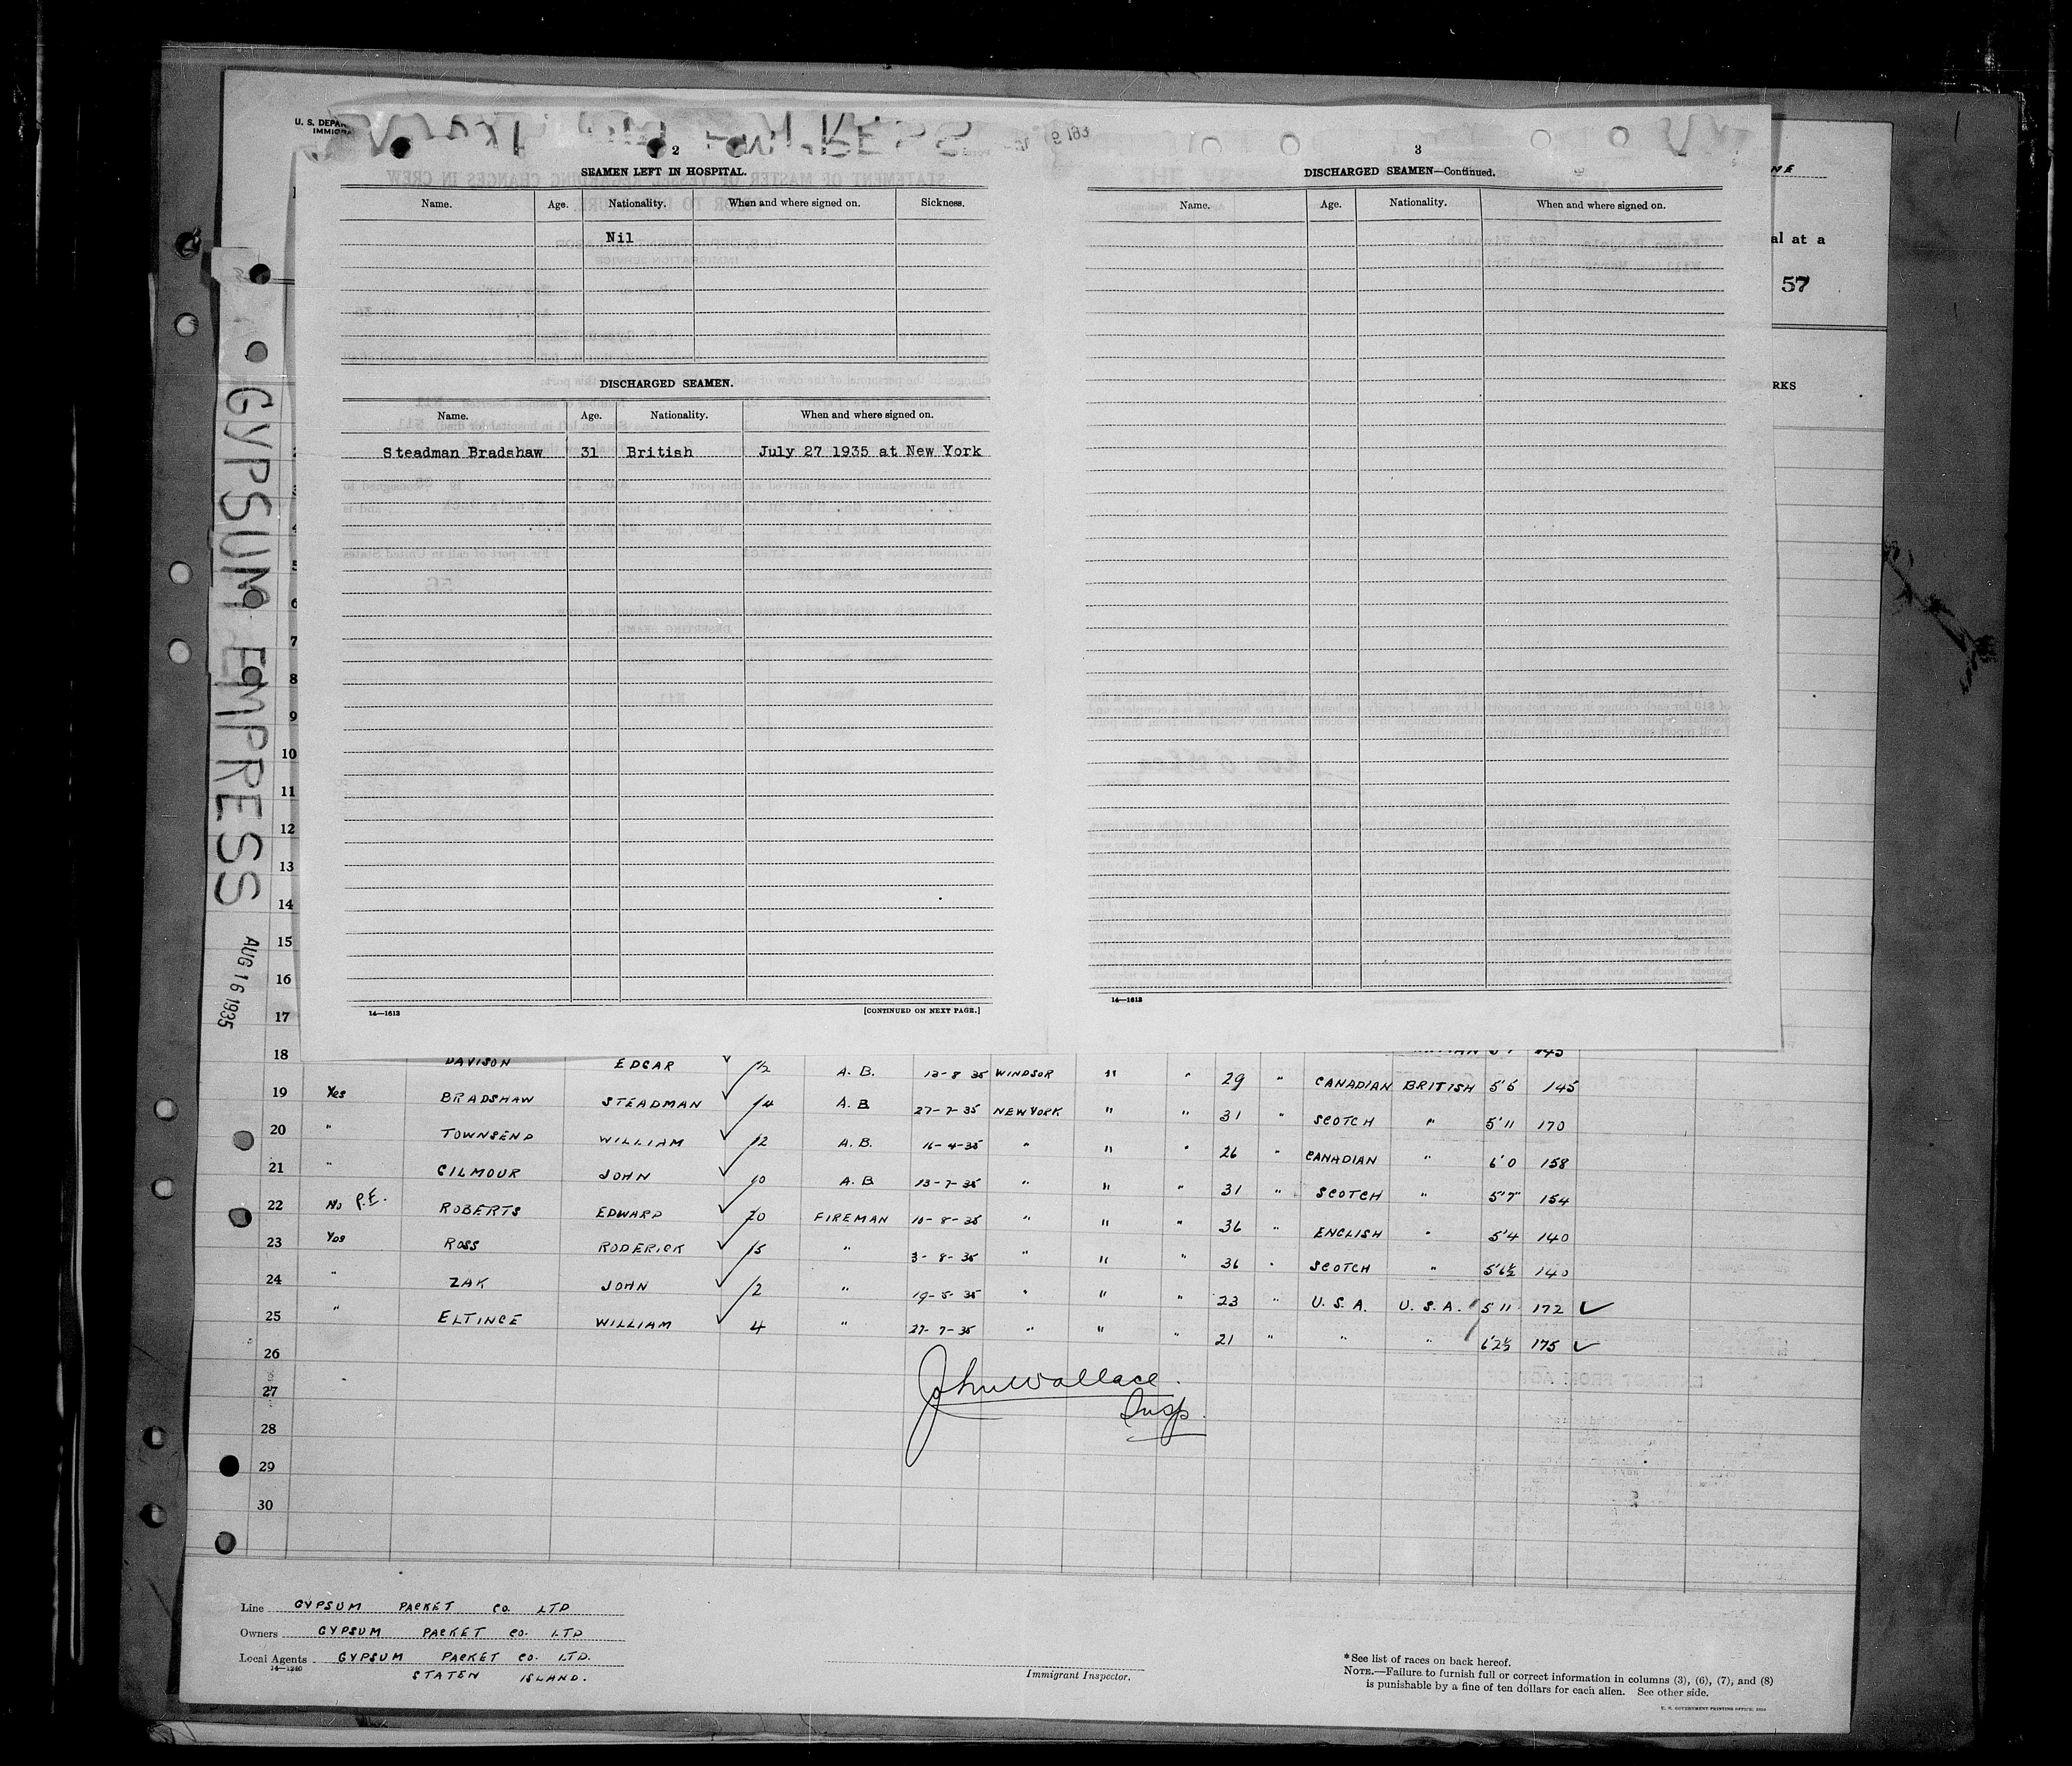 U. S. DEPAR
IMMIGRA
2
SEAMEN LEFT IN HOSPITAL.
Name. Age. Nationality. When and where signed on. Sickness.
Nil
DISCHARGED SEAMEN.
Name. Age. Nationality. When and where signed on.
Steadman Bradshaw 31 British July 27 1935 at New York
14—1613 [CONTINUED ON NEXT PAGE.]
3
DISCHARGED SEAMEN—Continued.
Name. Age. Nationality. When and where signed on.
14—1613
NE
al at a
57
RKS
GYPSUM EMPRESS
AUG 16 1935
5
6
7
8
9
10
11
12
13
14
15
16
17
18 DAVISON EDGAR 12 A. B. 13-8 35 WINDSOR " " 29 " CANADIAN BRITISH 5'5 145
19 Yes BRADSHAW STEADMAN 14 A. B 27-7-35 NEW YORK " " 31 " SCOTCH " 5'11 170
20 " TOWNSEND WILLIAM 12 A. B. 16-4-35 " " " 26 " CANADIAN " 6'0 158
21 " GILMOUR JOHN 10 A. B 13-7-35 " " " 31 " SCOTCH " 5'7" 154
22 No P.E. ROBERTS EDWARD 20 FIREMAN 10-8-35 " " " 36 " ENGLISH " 5'4 140
23 Yes ROSS RODERICK 15 " 3-8-35 " " " 36 " SCOTCH " 5'6½ 140
24 " ZAK JOHN 2 " 19-5-35 " " " 23 " U. S. A. U. S. A. 5'11 172 ✓
25 " ELTINGE WILLIAM 4 " 27-7-35 " " " 21 " " " 6'2½ 175 ✓
26
27
28
29
30
John Wallace.
Insp.
Line GYPSUM PACKET CO. LTD
Owners GYPSUM PACKET CO. LTD
Local Agents GYPSUM PACKET CO. LTD.
14—1240
STATEN ISLAND.
Immigrant Inspector.
*See list of races on back hereof.
NOTE.—Failure to furnish full or correct information in columns (3), (6), (7), and (8)
is punishable by a fine of ten dollars for each alien. See other side.
U. S. GOVERNMENT PRINTING OFFICE